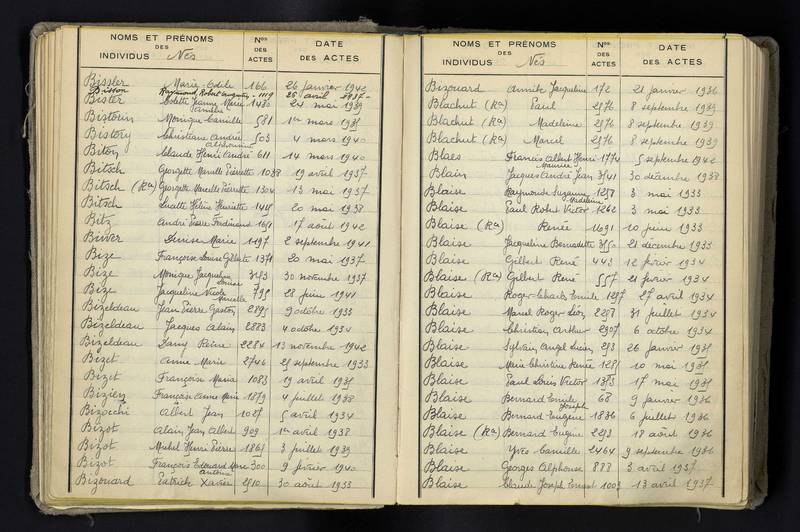 NOMS ET PRÉNOMS DES INDIVIDUS Nés
Nos DES ACTES
DATE DES ACTES
Bissler Marie Odile 166 26 janvier 1942
Bisson Raymond Robert 1119 25 avril 1937
Bister Odette Jeanne Marie 1480 24 mai 1939
Bistorin Monique Camille 581 1er mars 1935
Bistory Christiane Andrée 503 4 mars 1940
Biton Claude Henri André 611 14 mars 1940
Alphonsine
Bitsch Georgette Marcelle Pierrette 1038 19 avril 1937
Bitsch (Ra) Georgette Marcelle Pierrette 1304 13 mai 1937
Bitsch Lucette Hélène Henriette 20 mai 1938
Bitz André Pierre Ferdinand 1651 17 août 1942
Biwer Denise Marie 1497 2 septembre 1941
Bize Françoise Louise Gilberte 1371 20 mai 1937
Bize Monique Jacqueline 30 novembre 1937
Louise
Bize Jacqueline Nicole 28 juin 1941
Marcelle
Bizeldeau Jean Pierre Gaston 2895 9 octobre 1933
Bizeldeau Jacques Alain 2883 4 octobre 1934
Bizeldeau Dany Reine 2284 13 novembre 1942
Bizet Anne Marie 2746 25 septembre 1933
Bizet Françoise Maria 1083 19 avril 1935
Bizien Françoise Anne Marie 1879 4 juillet 1938
Bizochi Albert Jean 1087 5 avril 1934
Bizot Alain Jean Albert 909 1er avril 1938
Bizot Michel Henri Pierre 1861 3 juillet 1939
Bizot François Edouard Marie 300 9 février 1940
Antoine
Bizouard Patrick Xavier 2510 30 août 1933
NOMS ET PRÉNOMS DES INDIVIDUS Nés
Nos DES ACTES
DATE DES ACTES
Bizouard Annik Jacqueline 172 21 janvier 1936
Blachut (Ra) Paul 2376 8 septembre 1939
Blachut (Ra) Madeleine 2376 8 septembre 1939
Blachut (Ra) Marcel 2376 8 septembre 1939
Blaes Francis Albert Henri 1774 5 septembre 1942
Maurice
Blain Jacques André Jean 3541 30 décembre 1938
Blaise Raymonde Suzanne 1258 3 mai 1933
Madeleine
Blaise Paul Robert Victor 1262 3 mai 1933
Blaise (Ra) Renée 1691 10 juin 1933
Blaise Jacqueline Bernadette 21 décembre 1933
Blaise Gilbert René 443 12 février 1934
Blaise (Ra) Gilbert René 557 21 février 1934
Blaise Roger Charles Emile 1287 27 avril 1934
Blaise Marcel Roger Léon 2258 31 juillet 1934
Blaise Christian Arthur 2907 6 octobre 1934
Blaise Sylvain Angel Lucien 253 26 janvier 1935
Blaise Marie Christine Renée 1281 10 mai 1935
Blaise Paul Louis Victor 1353 17 mai 1935
Blaise Bernard Emile 68 9 janvier 1936
Joseph
Blaise Bernard Eugène 1836 6 juillet 1936
Blaise (Ra) Bernard Eugène 2253 18 août 1936
Blaise Yves Camille 2464 9 septembre 1936
Blaise Georges Alphonse 888 3 avril 1937
Blaise Claude Joseph Ernest 1003 13 avril 1937